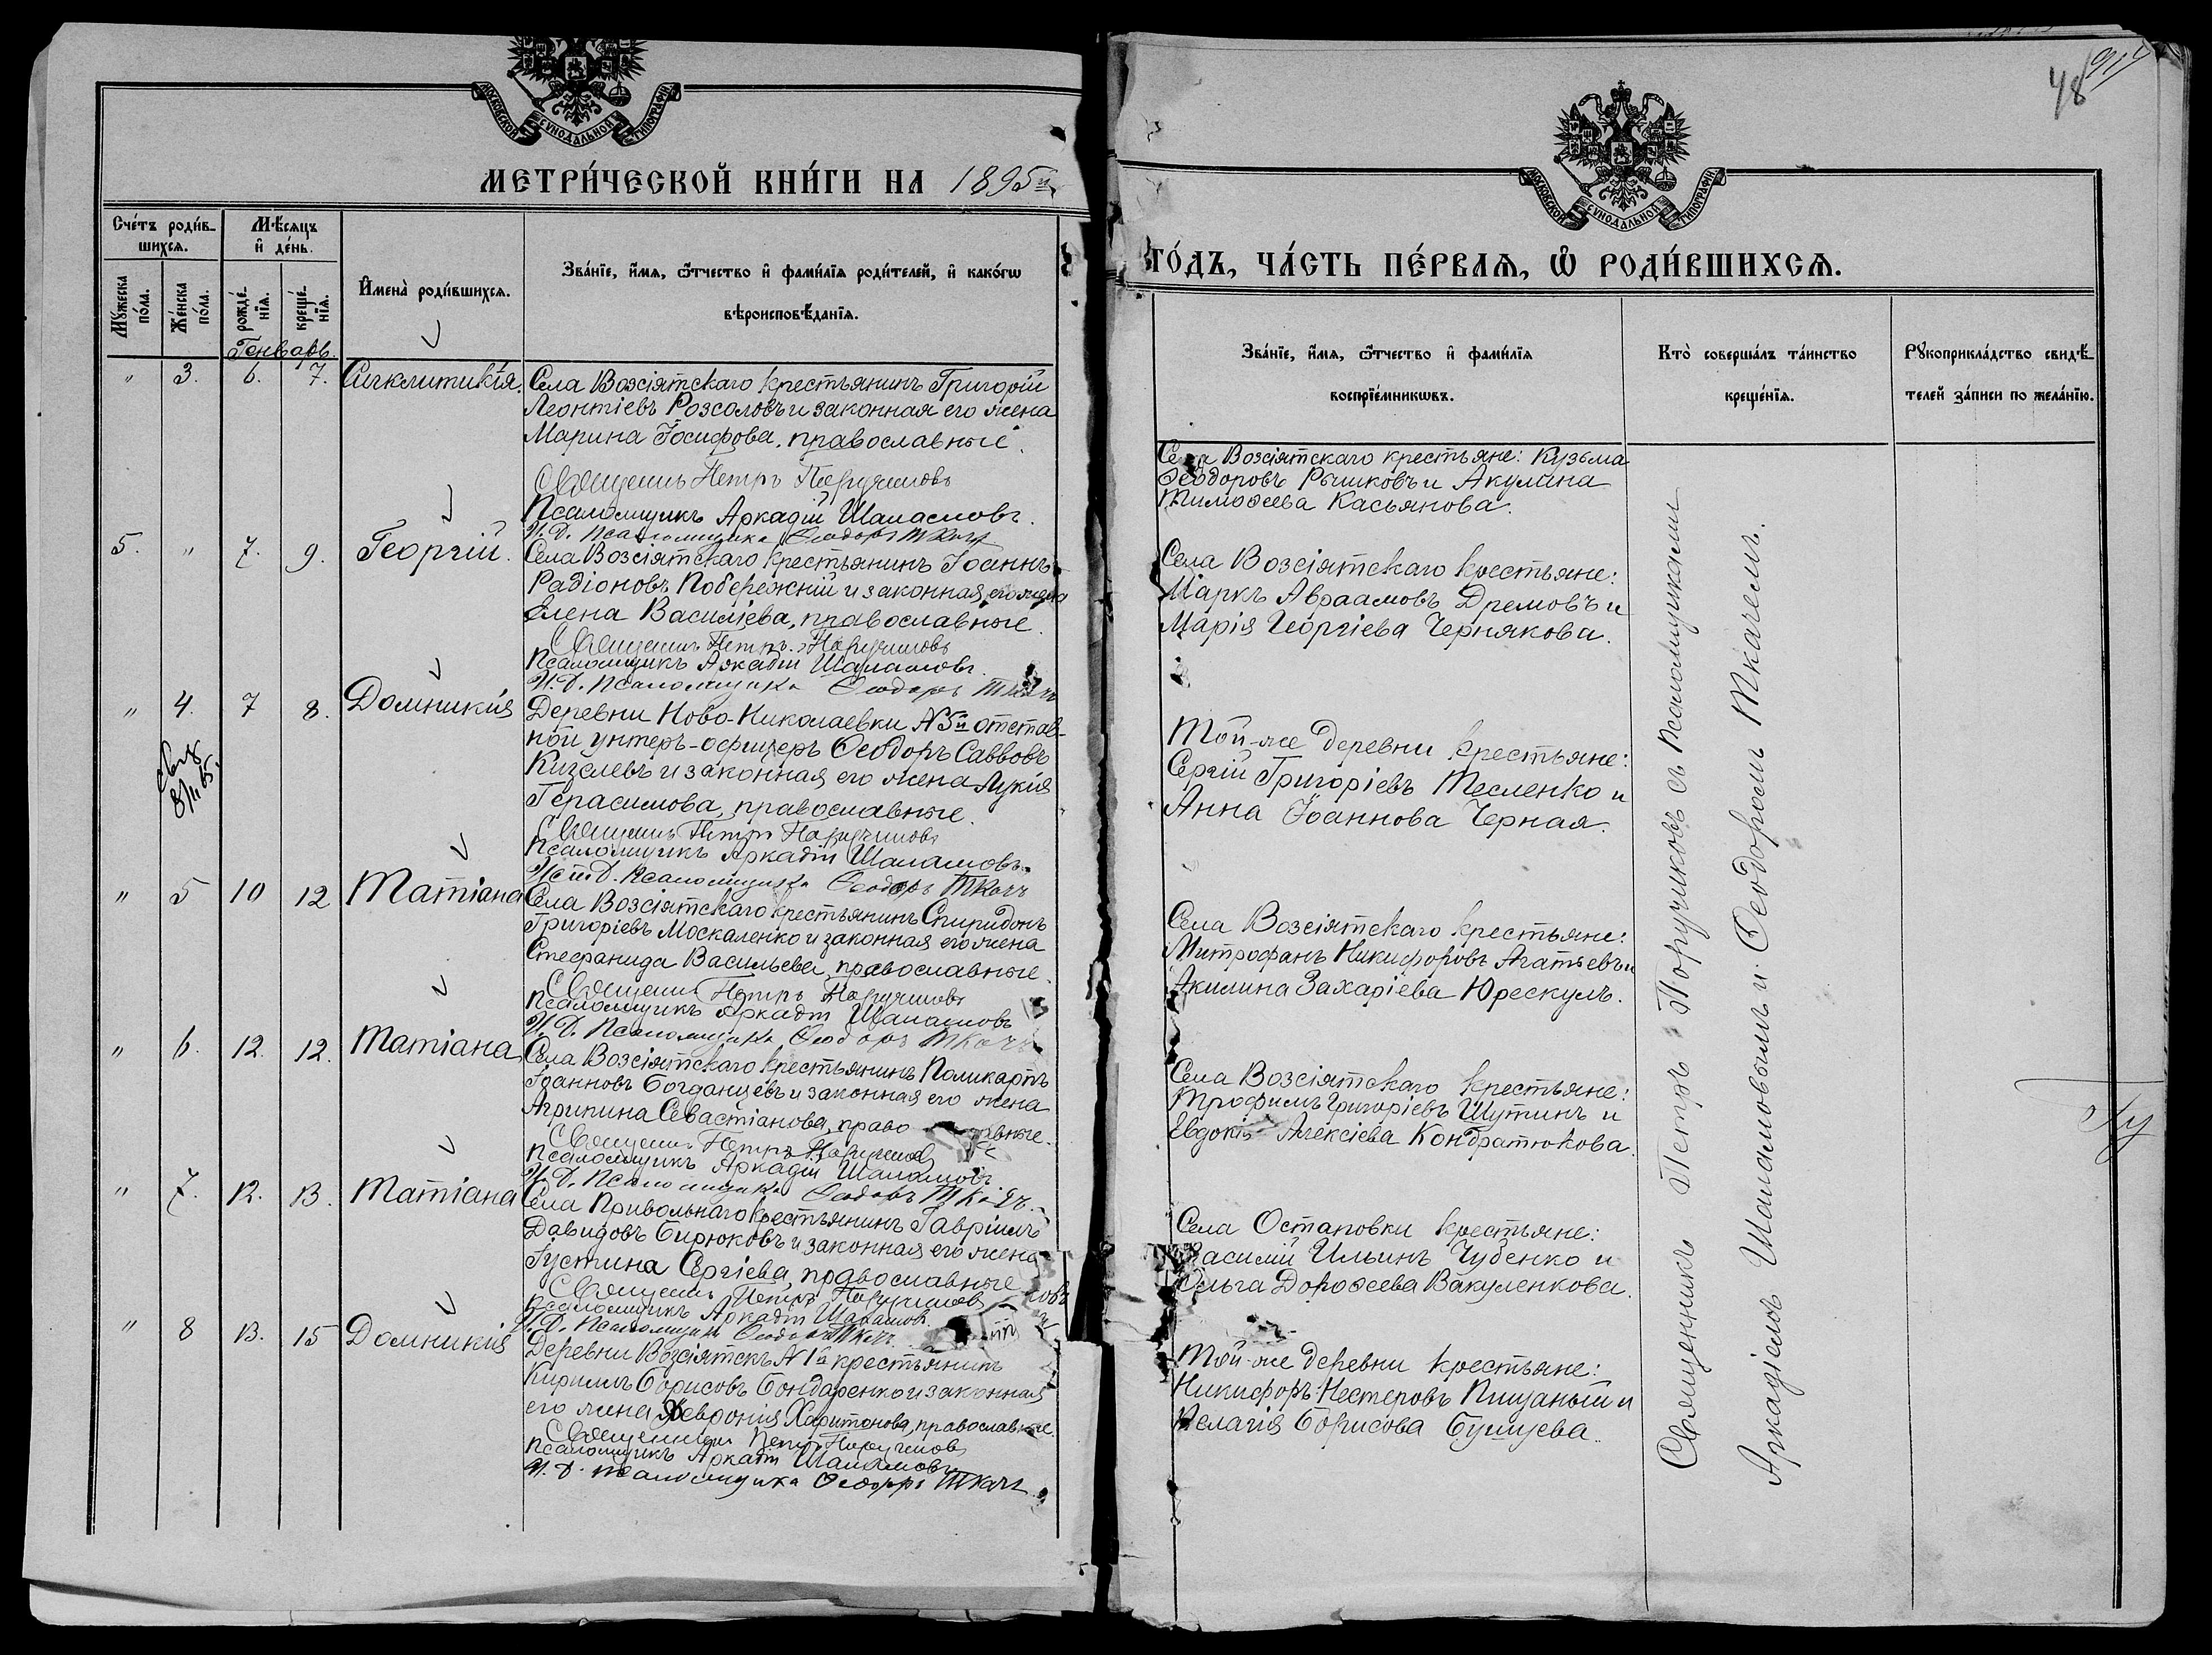 МОСКОВСКОЙ СѴНОДАЛЬНОЙ ТИПОГРАФІИ
МЕТРИ́ЧЕСКОЙ КНИ́ГИ НА 1895й
Сче́тъ роди́в-
шихся.
Мѣ́сяцъ
и҆ де́нь.
Мꙋ́жеска
по́ла.
Же́нска
по́ла.
рожде́-
нїѧ.
креще́-
нїѧ.
И҆мена̀ роди́вшихсѧ.
Зва́нїе, и҆́мѧ, ѻ҆́тчество и҆ фами́лїѧ роди́телей, и҆ како́гѡ
вѣроисповѣ́данїѧ.
Генварь.
" 3. 6. 7. Сигклитикія. Села Возсіятскаго крестьянинъ Григорій
Леонтіевъ Розсоловъ и законная его жена
Марина Іосифова, православные.
Священникъ Петръ Поручиковъ
Псаломщикъ Аркадій Шаламовъ.
И. Д. Псаломщика Ѳеодоръ Ткачъ
5. " 7. 9. Георгій. Села Возсіятскаго крестьянинъ Іоаннъ
Радіоновъ Побережній и законная его жена
Елена Василіева, православные.
Священникъ Петръ Поручиковъ
Псаломщикъ Аркадій Шаламовъ.
И. Д. Псаломщика Ѳеодоръ Ткачъ
" 4. 7 8. Домникія Деревни Ново-Николаевки №5й отстав-
ной унтеръ-офицеръ Ѳеодоръ Саввовъ
Кизелевъ и законная его жена Лукія
Герасимова, православные.
Священникъ Петръ Поручиковъ
Псаломщикъ Аркадій Шаламовъ.
И. Д. Псаломщика Ѳеодоръ Ткачъ
" 5 10 12 Татіана Села Возсіятскаго крестьянинъ Спиридонъ
Григоріевъ Москаленко и законная его жена
Стефанида Васильева, православные.
Священникъ Петръ Поручиковъ
Псаломщикъ Аркадій Шаламовъ
И. Д. Псаломщика Ѳеодоръ Ткачъ
" 6. 12. 12. Татіана Села Возсіятскаго крестьянинъ Поликарпъ
Іоанновъ Богданцевъ и законная его жена
Агрипина Севастіанова, право вные.
Священникъ Петръ Поручиковъ
Псаломщикъ Аркадій Шаламовъ
И. Д. Псаломщика Ѳеодоръ Ткачъ.
" 7. 12. 13. Татіана Села Привольнаго крестьянинъ Гавріилъ
Давидовъ Бирюковъ и законная его жена
Іустина Сергіева, православные
Священникъ Петръ Поручиковъ
Псаломщикъ Аркадій Шаламовъ
И. Д. Псаломщика Ѳеодоръ Ткачъ
" 8 13. 15 Домникія Деревни Возсіятскъ №1й крестьянинъ
Кириллъ Борисовъ Бондаренко и законная
его жена Февронія Харитонова, православные.
Священникъ Петръ Поручиковъ
Псаломщикъ Аркадій Шаламовъ
И. Д. Псаломщика Ѳеодоръ Ткачъ
48
МОСКОВСКОЙ СѴНОДАЛЬНОЙ ТИПОГРАФІИ
ГО́ДЪ, ЧА́СТЬ ПЕ́РВАѦ, Ѡ҆ РОДИ́ВШИХСѦ.
Зва́нїе, и҆́мѧ, ѻ҆́тчество и҆ фами́лїѧ
воспрїе́мникѡвъ.
Кто̀ соверша́лъ та́инство
креще́нїѧ.
Рꙋкоприкла́дство свидѣ́-
телей за́писи по жела́нїю.
Села Возсіятскаго крестьяне: Кузьма
Ѳеодоровъ Рышковъ и Акулина
Тимоѳеева Касьянова.
Села Возсіятскаго крестьяне:
Маркъ Авраамовъ Дремовъ и
Марія Георгіева Чернякова.
Той-же деревни крестьяне:
Сергій Григоріевъ Тесленко и
Анна Іоаннова Черная.
Села Возсіятскаго крестьяне:
Митрофанъ Никифоровъ Агатьевъ и
Акилина Захаріева Юрескулъ.
Села Возсіятскаго крестьяне:
Трофимъ Григоріевъ Шутинъ и
Евдокія Алексіева Кондратюкова.
Села Остаповки крестьяне:
Василій Ильинъ Чубенко и
Ольга Дороѳеева Вакуленкова.
Той-же деревни крестьяне:
Никифоръ Нестеровъ Пищаный и
Пелагія Борисова Бушуева.
Священникъ Петръ Поручиковъ съ псаломщиками
Аркадіемъ Шаламовымъ и Ѳеодоромъ Ткачемъ.